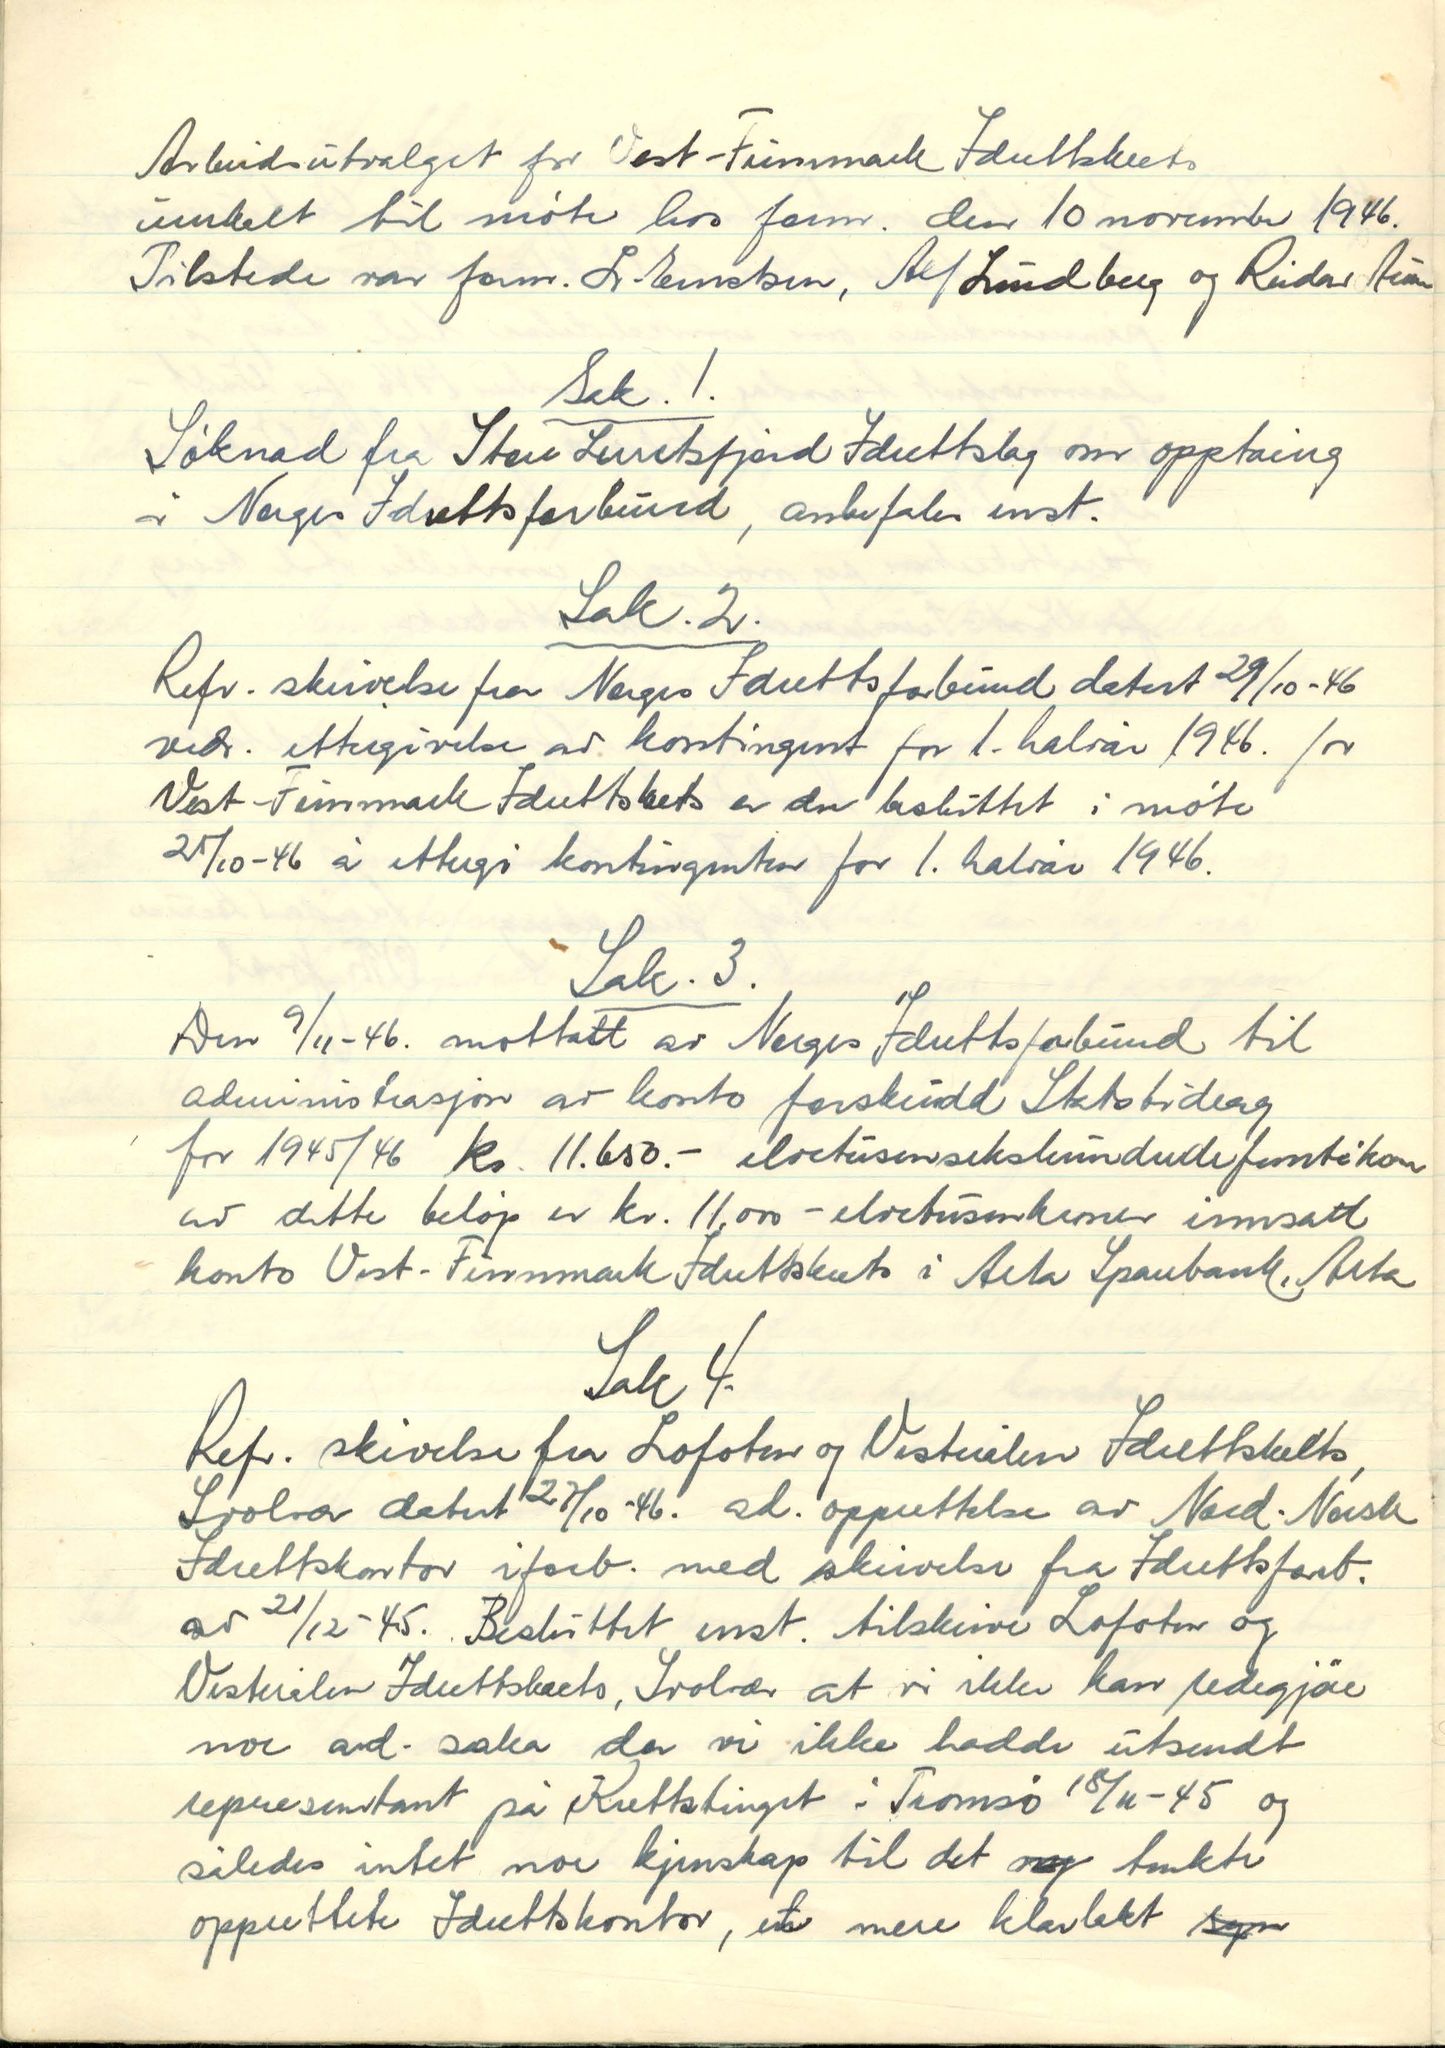 Arbeidsutvalget for Vest-Finnmark Idrettskrets
innkalt til møte hos form. den 10 november 1946.
Tilstede var form. Lr. Ernstsen, Alf Lundberg og Reidar
Sak. 1.
Søknad fra Store Lerretsfjord Idrettslag om opptaing
i Norges Idrettsforbund, anbefales enst.
Sak. 2.
Refr. skrivelse fra Norges Idrettsforbund datert 29/10-46
vedr. ettergivelse av kontingent for 1. halvår 1946. for
Vest-Finnmark Idrettskrets er der besluttet i møte
25/10-46 å ettergi kontingenten for 1. halvår 1946.
Sak. 3.
Den 9/11-46. mottatt av Norges Idrettsforbund til
administrasjon av konto forskudd Statsbidrag
for 1945/46 kr. 11.650.- elvetusensekshundredefemtikron
av dette beløp er kr. 11,000 - elvetusenkroner innsatt
konto Vest-Finnmark Idrettskrets i Alta Sparebank, Alta
Sak 4.
Refr. skivelse fra Lofoten og Vesterålen Idrettskrets,
Svolvær datert 27/10-46. ad. opprettelse av Nord-Norsk
Idrettskontor iforb. med skrivelse fra Idrettsforb.
av 21/12-45. Besluttet enst. tilskrive Lofoten og
Vesterålen Idrettskrets, Svolvær at vi ikke kan redegjöre
noe ad. saka da vi ikke hadde utsendt
representant på Kretstinget i Tromsø 18/11-45 og
således intet noe kjenskap til det tenkte
opprettete Idrettskontor, en mere klarlakt